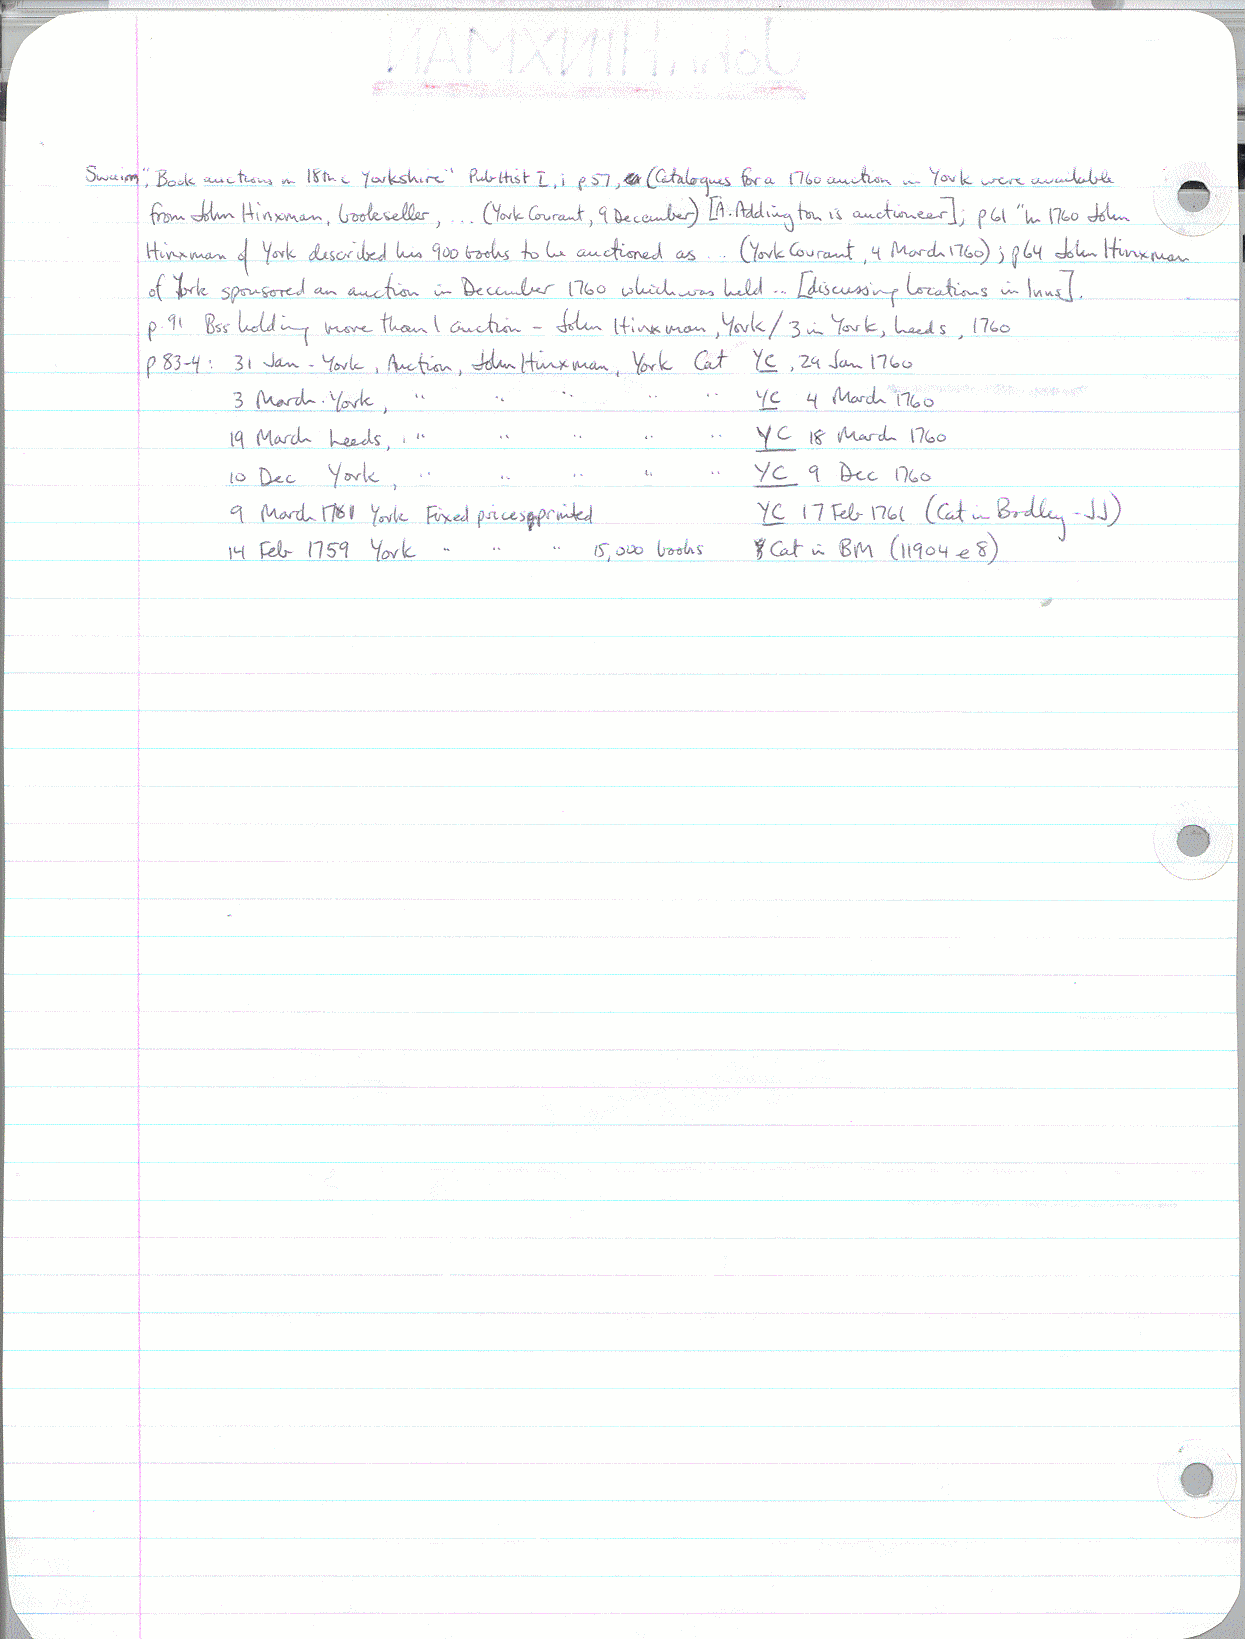 Swaim, "Book auctions in 18th c Yorkshire" Pub Hist I, i p 57, (Catalogues for a 1760 auction in York were available
from John Hinxman, bookseller, ... (York Courant, 9 December) [A. Addington is auctioneer]; p 61 "In 1760 John
Hinxman of York described his 900 books to be auctioned as ... (York Courant, 4 March 1760); p 64 John Hinxman
of York sponsored an auction in December 1760 which was held ... [discussing locations in Inns].
p. 91 Bss holding more than 1 auction - John Hinxman, York / 3 in York, Leeds, 1760
p 83-4: 31 Jan - York, Auction, John Hinxman, York Cat YC, 29 Jan 1760
3 March. York, " " " " " YC 4 March 1760
19 March Leeds, " " " " " YC 18 March 1760
10 Dec York, " " " " " YC 9 Dec 1760
9 March 1761 York Fixed prices printed YC 17 Feb 1761 (Cat in Bodley - JJ)
14 Feb 1759 York " " " 15,000 books Cat in BM (11904 e 8)